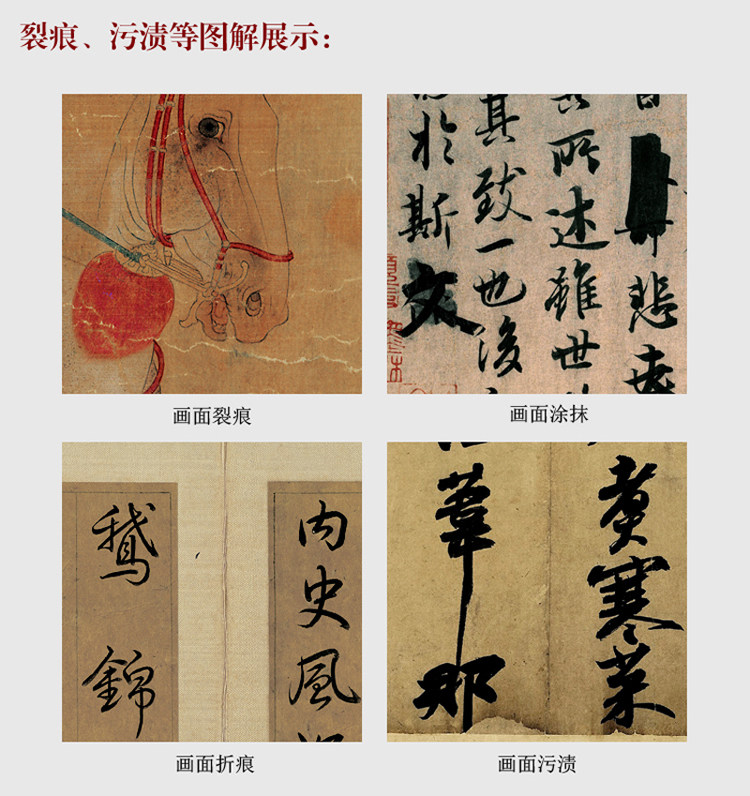 裂痕、污渍等图解展示：
於
斯
文
其致一也後
所述雖世
悲
画面裂痕
画面涂抹
鵝
錦
内史風
葦那
黄寒菜
画面折痕
画面污渍